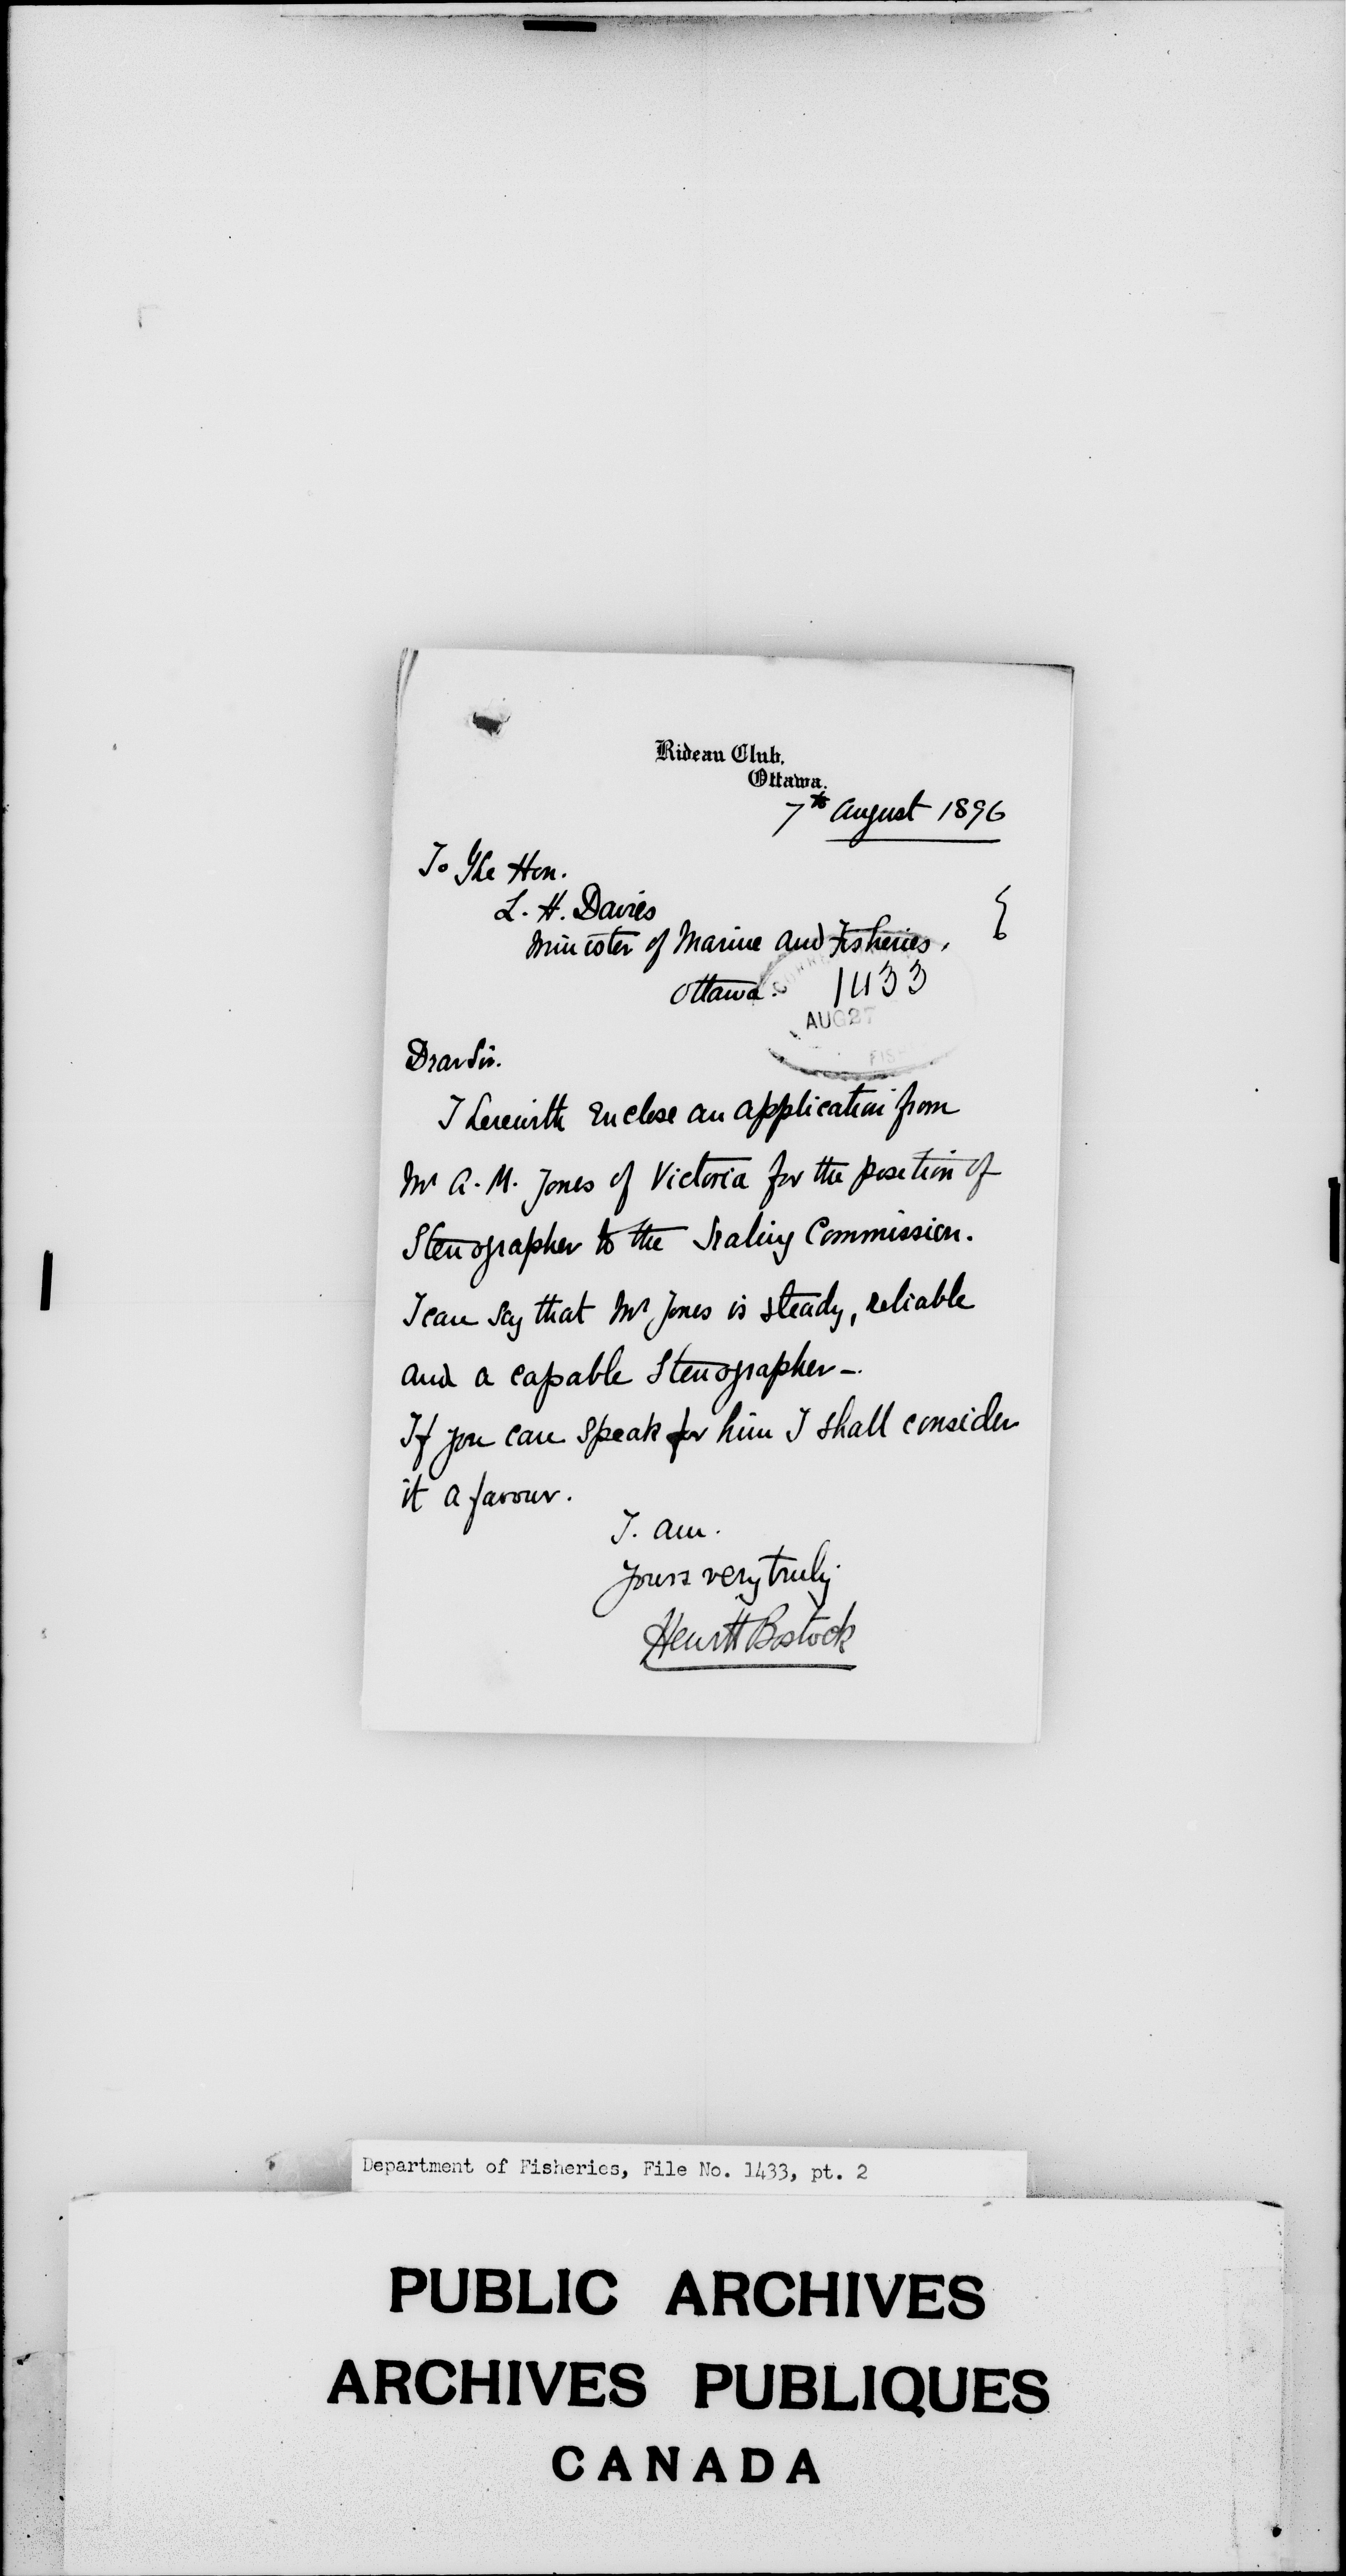 Rideau Club,
Ottawa.
7th August 1896
To The Hon.
L. H. Davies
Minister of Marine and Fisheries,
Ottawa.
1433
AUG 27
FIS
Dear Sir.
I herewith enclose an application from
Mr A. M. Jones of Victoria for the position of
Stenographer to the Sealing Commission.
I can say that Mr Jones is steady, reliable
and a capable Stenographer -.
If you can speak for him I shall consider
it a favour.
I. am.
Yours very truly
Hewitt Bostock
Department of Fisheries, File No. 1433, pt. 2
PUBLIC ARCHIVES
ARCHIVES PUBLIQUES
CANADA